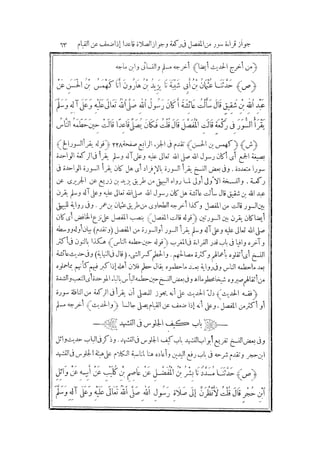 جواز قراءة سور من المفصل فى ركعة وجواز الصلاة قاعدا إذا ضعف عن القيام ٦٣
﴿من أخرج الحديث أيضا﴾ أخرجه مسلم والنسائى وابن ماجه
﴿ص﴾ حَدَّثَنَا عُثْمَانُ بْنُ أَبِى شَيْبَةَ نَا يَزِيدُ بْنُ هَارُونَ أَنَا كَهْمَسُ بْنُ الْحَسَنِ عَنْ
عَبْدِ اللهِ بْنِ شَقِيقٍ قَالَ سَأَلْتُ عَائِشَةَ أَكَانَ رَسُولُ اللهِ صَلَّى اللهُ تَعَالَى عَلَيْهِ وَعَلَى آلِهِ وَسَلَّمَ
يَقْرَأُ السُّوَرَ فِى رَكْعَةٍ قَالَتِ الْمُفَصَّلَ قَالَ قُلْتُ فَكَانَ يُصَلِّى قَاعِدًا قَالَتْ حِينَ حَطَمَهُ النَّاسُ
﴿ش﴾ ﴿كهمس بن الحسن﴾ تقدم فى الجزء الرابع صفحة ٢٢٨ ﴿قوله يقرأ السور الخ﴾
بصيغة الجمع أى أكان رسول الله صلى الله تعالى عليه وعلى آله وسلم يقرأ فى الركعة الواحدة
سورا متعددة. وفى بعض النسخ يقرأ السورة بالإفراد أى هل كان يقرأ السورة الواحدة فى
ركعة. والنسخة الأولى أولى لما رواه البيهقى من طريق يزيد بن زريع عن الجريرى عن
عبد الله بن شقيق قال سألت عائشة هل كان رسول الله صلى الله تعالى عليه وآله وسلم يقرن
بين السور قالت من المفصل وكذا أخرجه الطحاوى من طريق عثمان بن عمر. وفى رواية للبيهقى
أيضا كان يقرن بين السورتين ﴿قوله قالت المفصل﴾ بنصب المفصل على نزع الخافض أى كان
صلى الله تعالى عليه وعلى آله وسلم يقرأ السور أو السورة من المفصل ﴿وتقدم﴾ بيان أوله ووسطه
وآخره وافيا فى باب قدر القراءة فى المغرب ﴿قوله حين حطمه الناس﴾ هكذا بالنون فى أكثر
النسخ أى أثقلوه بأحمالهم وكثرة مصالحهم. والحطم كسر الشىء ﴿قال فى النهاية﴾ وفى حديث عائشة
بعد ما حطمه الناس وفى رواية بعد ما حطمتموه يقال حطم فلانا أهله إذا كبر فيهم كأنهم بما حملوه
من أثقالهم صيروه شيخا محطوما اهـ وفى بعض النسخ حين حطمه البأس بالباء الموحدة أى التعب والشدة
﴿فقه الحديث﴾ دل الحديث على أنه يجوز للمصلى أن يقرأ فى الركعة من النافلة سورة
أو أكثر من المفصل. وعلى أنه إذا ضعف عن القيام يصلى جالسا ﴿والحديث﴾ أخرجه مسلم
باب كيف الجلوس فى التشهد
وفى بعض النسخ تفريع أبواب التشهد باب كيف الجلوس فى التشهد. وذكر فى الباب حديث وائل
ابن حجر وتقدم شرحه فى باب رفع اليدين وأعاده هنا لمناسبة الكلام على هيئة الجلوس فى التشهد
﴿ص﴾ حَدَّثَنَا مُسَدَّدٌ نَا بِشْرُ بْنُ الْمُفَضَّلِ عَنْ عَاصِمِ بْنِ كُلَيْبٍ عَنْ أَبِيهِ عَنْ وَائِلِ
ابْنِ حُجْرٍ قَالَ قُلْتُ لَأَنْظُرَنَّ إِلَى صَلَاةِ رَسُولِ اللهِ صَلَّى اللهُ تَعَالَى عَلَيْهِ وَعَلَى آلِهِ وَسَلَّمَ